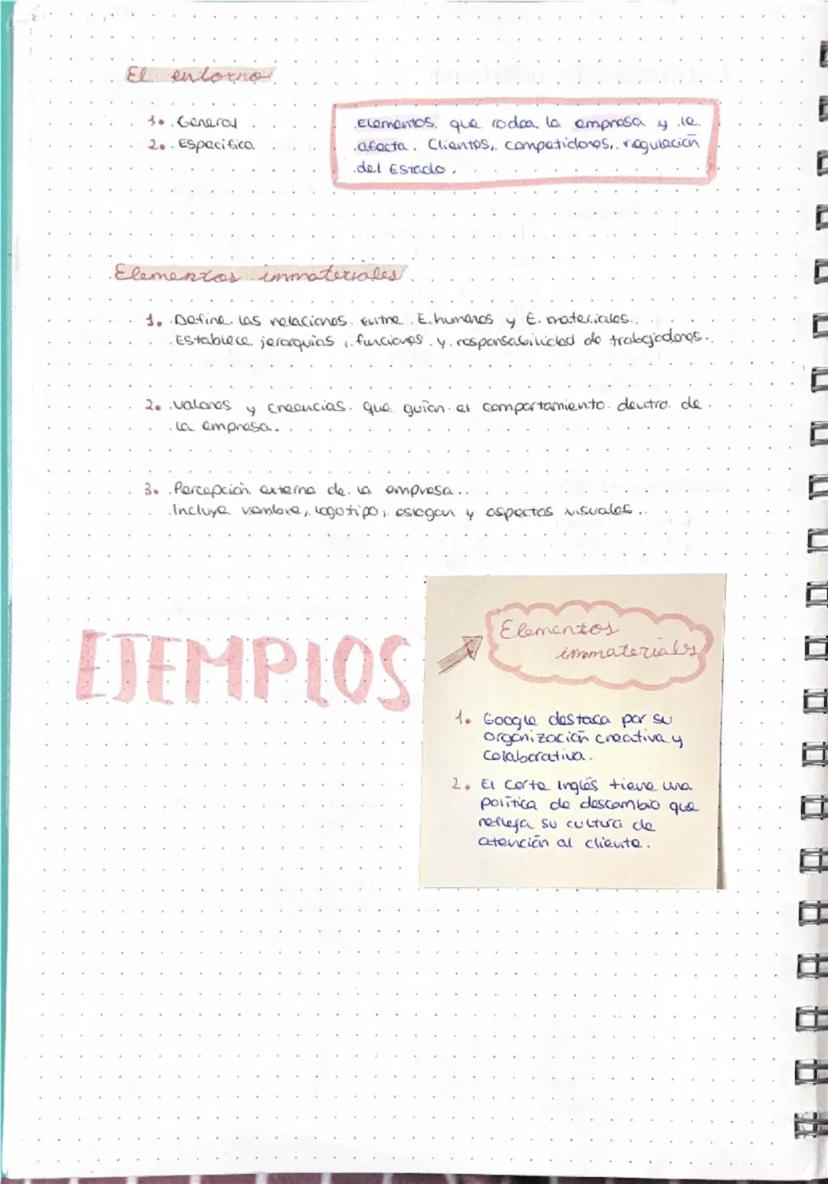 El entorno
1. General
2. Especifico
Elementos que rodea la empresa y le
afecta. Clientes, competidores, regulación
del Estado.
Elementos immateriales
1. Define las relaciones entre E. humanos y E. materiales.
Establece jerarquías, funciones y responsabilidad de trabajadores.
2. Valores y creencias que guían el comportamiento dentro de
la empresa.
3. Percepción externa de la empresa.
Incluye nombre, logotipo, eslogan y aspectos visuales.
EJEMPLOS
Elementos
immateriales
1. Google destaca por su
organización creativa y
colaborativa.
2. El Corte Inglés tiene una
política de descambio que
refleja su cultura de
atención al cliente.